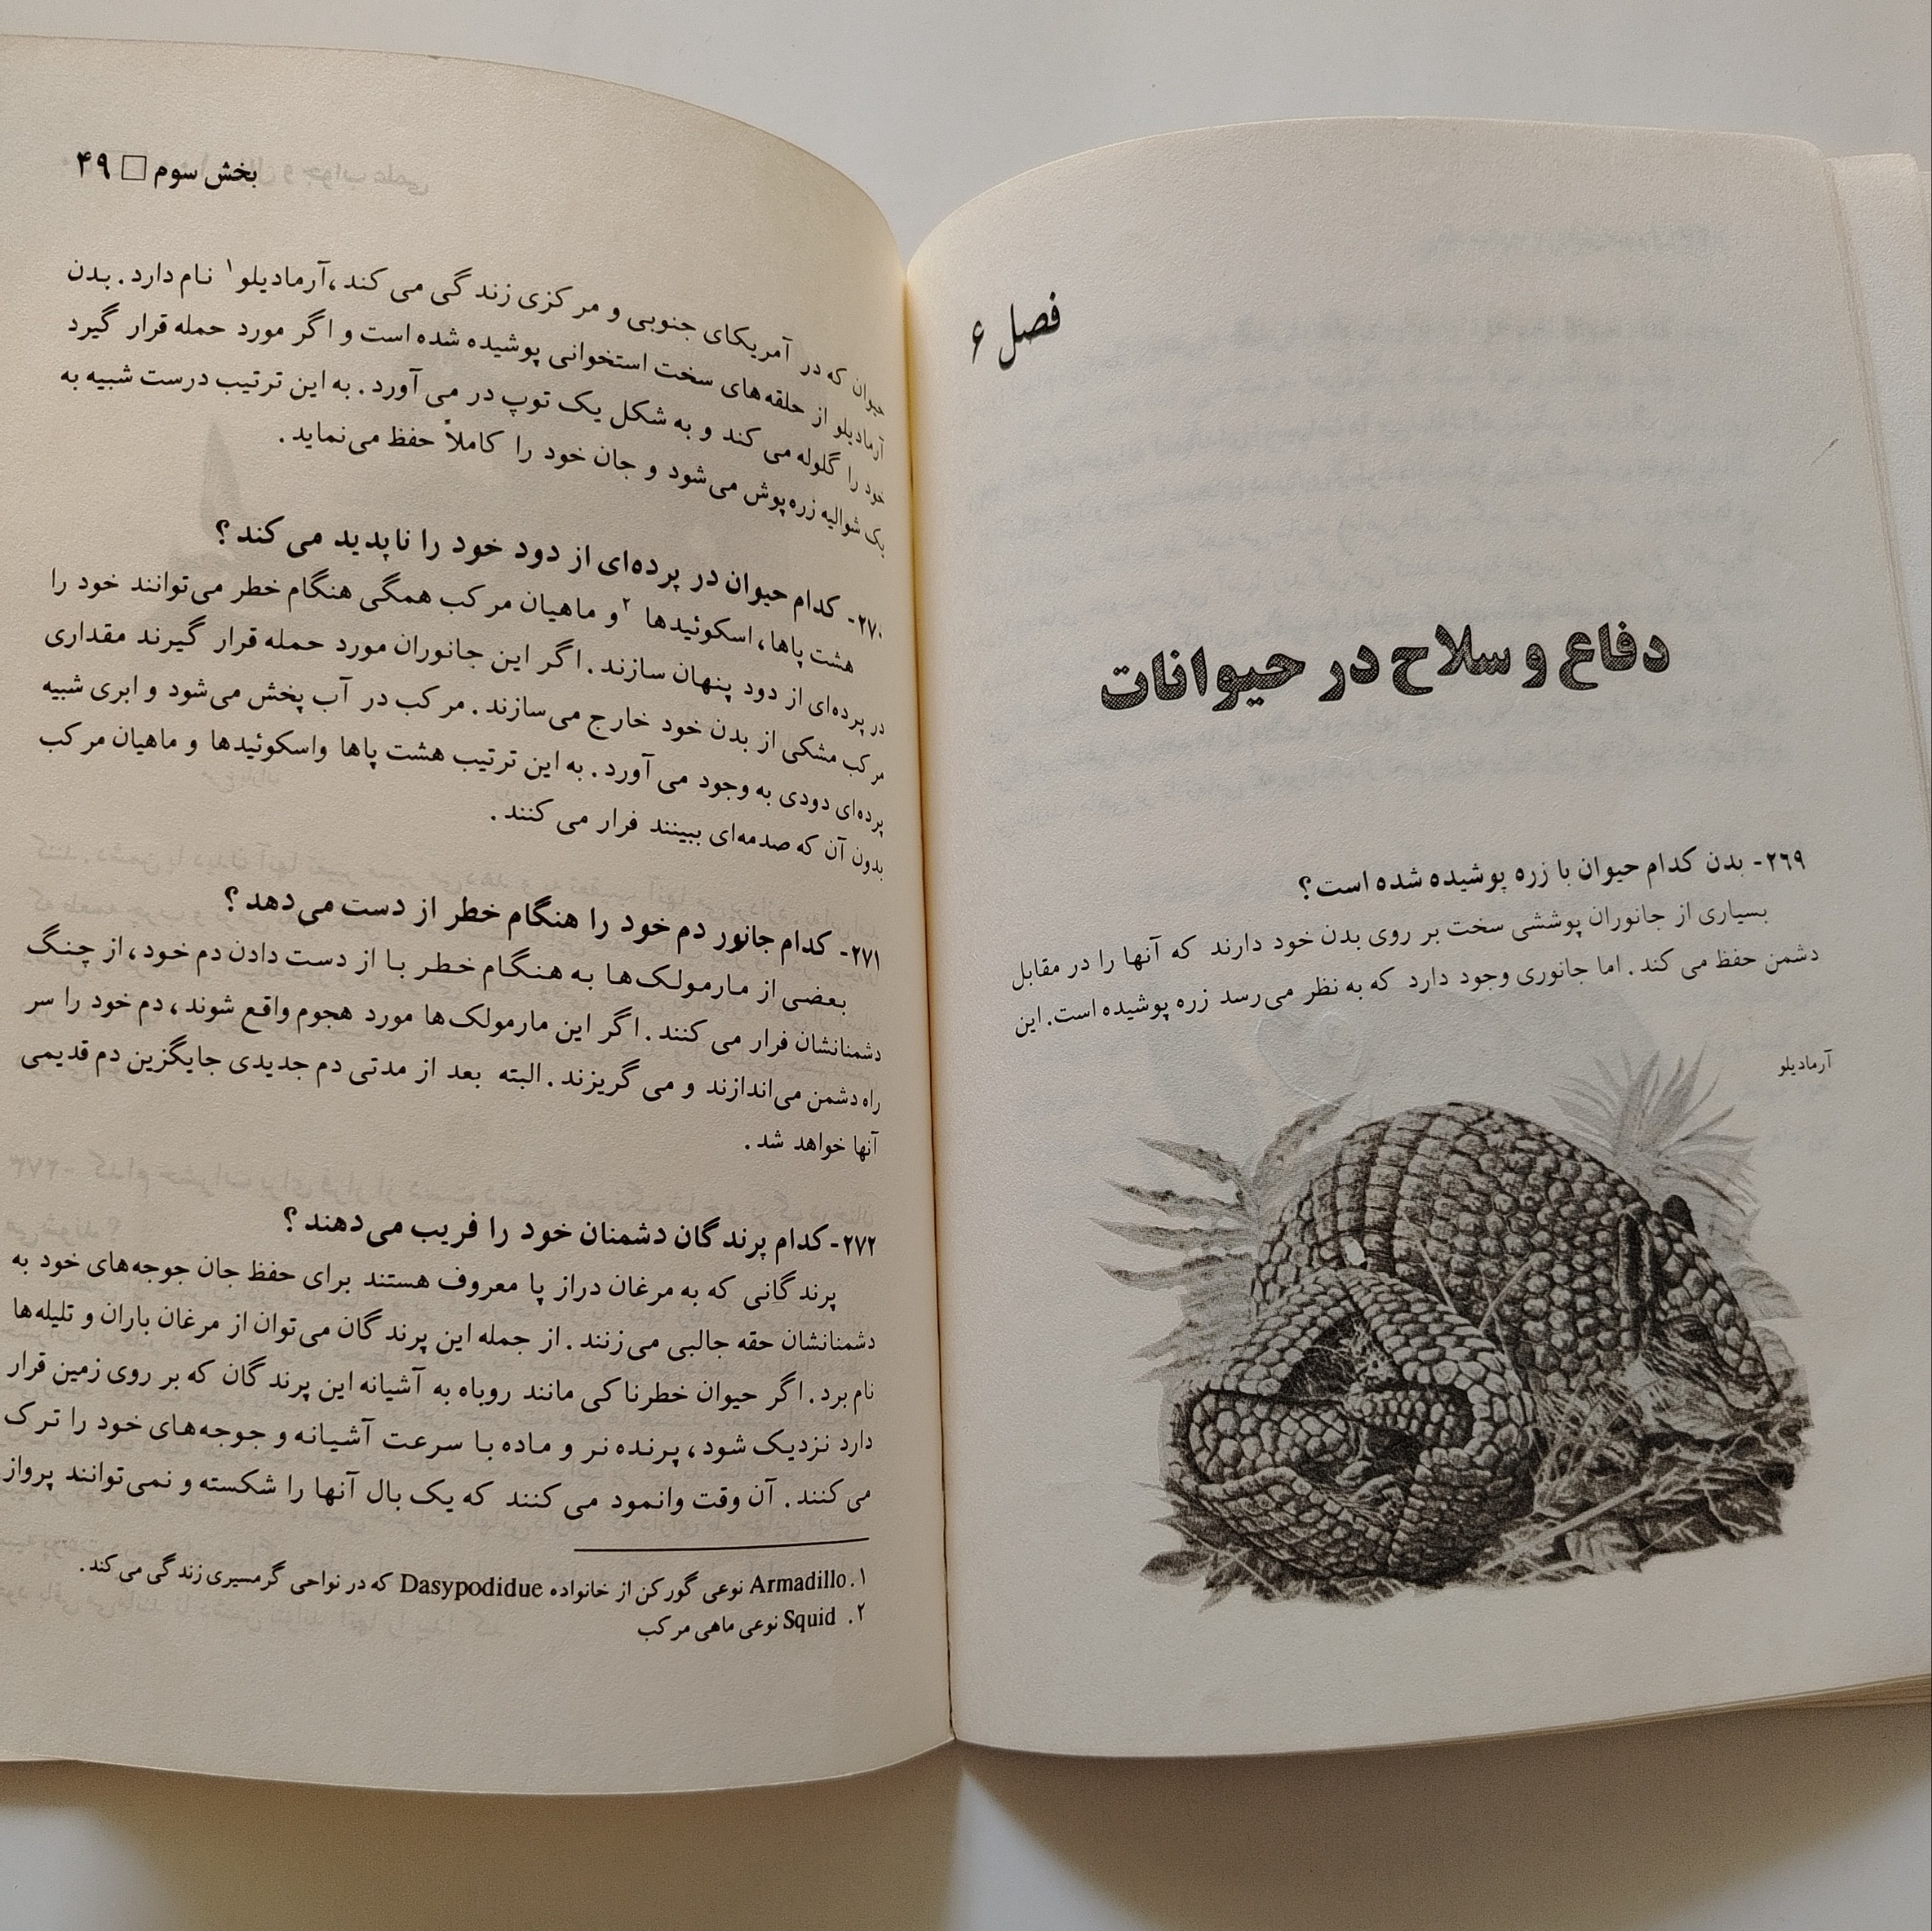 فصل ۶
دفاع و سلاح در حیوانات
۲۶۹- بدن کدام حیوان با زره پوشیده شده است؟
بسیاری از جانوران پوششی سخت بر روی بدن خود دارند که آنها را در مقابل
دشمن حفظ می کند. اما جانوری وجود دارد که به نظر می‌رسد زره پوشیده است. این
آرمادیلو
بخش سوم □ ۴۹
حیوان که در آمریکای جنوبی و مرکزی زندگی می کند، آرمادیلو۱ نام دارد. بدن
آرمادیلو از حلقه‌های سخت استخوانی پوشیده شده است و اگر مورد حمله قرار گیرد
خود را گلوله می کند و به شکل یک توپ در می آورد. به این ترتیب درست شبیه به
یک شوالیه زره‌پوش می‌شود و جان خود را کاملاً حفظ می‌نماید.
۲۷۰- کدام حیوان در پرده‌ای از دود خود را ناپدید می کند؟
هشت پاها، اسکوئیدها۲ و ماهیان مرکب همگی هنگام خطر می‌توانند خود را
در پرده‌ای از دود پنهان سازند. اگر این جانوران مورد حمله قرار گیرند مقداری
مرکب مشکی از بدن خود خارج می‌سازند. مرکب در آب پخش می‌شود و ابری شبیه
پرده‌ای دودی به وجود می آورد. به این ترتیب هشت پاها واسکوئیدها و ماهیان مرکب
بدون آن که صدمه‌ای ببینند فرار می کنند.
۲۷۱- کدام جانور دم خود را هنگام خطر از دست می‌دهد؟
بعضی از مارمولک‌ها به هنگام خطر با از دست دادن دم خود، از چنگ
دشمنانشان فرار می کنند. اگر این مارمولک‌ها مورد هجوم واقع شوند، دم خود را سر
راه دشمن می‌اندازند و می گریزند. البته بعد از مدتی دم جدیدی جایگزین دم قدیمی
آنها خواهد شد.
۲۷۲- کدام پرندگان دشمنان خود را فریب می‌دهند؟
پرندگانی که به مرغان دراز پا معروف هستند برای حفظ جان جوجه‌های خود به
دشمنانشان حقه جالبی می‌زنند. از جمله این پرندگان می‌توان از مرغان باران و تلیله‌ها
نام برد. اگر حیوان خطرناکی مانند روباه به آشیانه این پرندگان که بر روی زمین قرار
دارد نزدیک شود، پرنده نر و ماده با سرعت آشیانه و جوجه‌های خود را ترک
می کنند. آن وقت وانمود می کنند که یک بال آنها را شکسته و نمی‌توانند پرواز
۱. Armadillo نوعی گورکن از خانواده Dasypodidue که در نواحی گرمسیری زندگی می کند.
۲. Squid نوعی ماهی مرکب